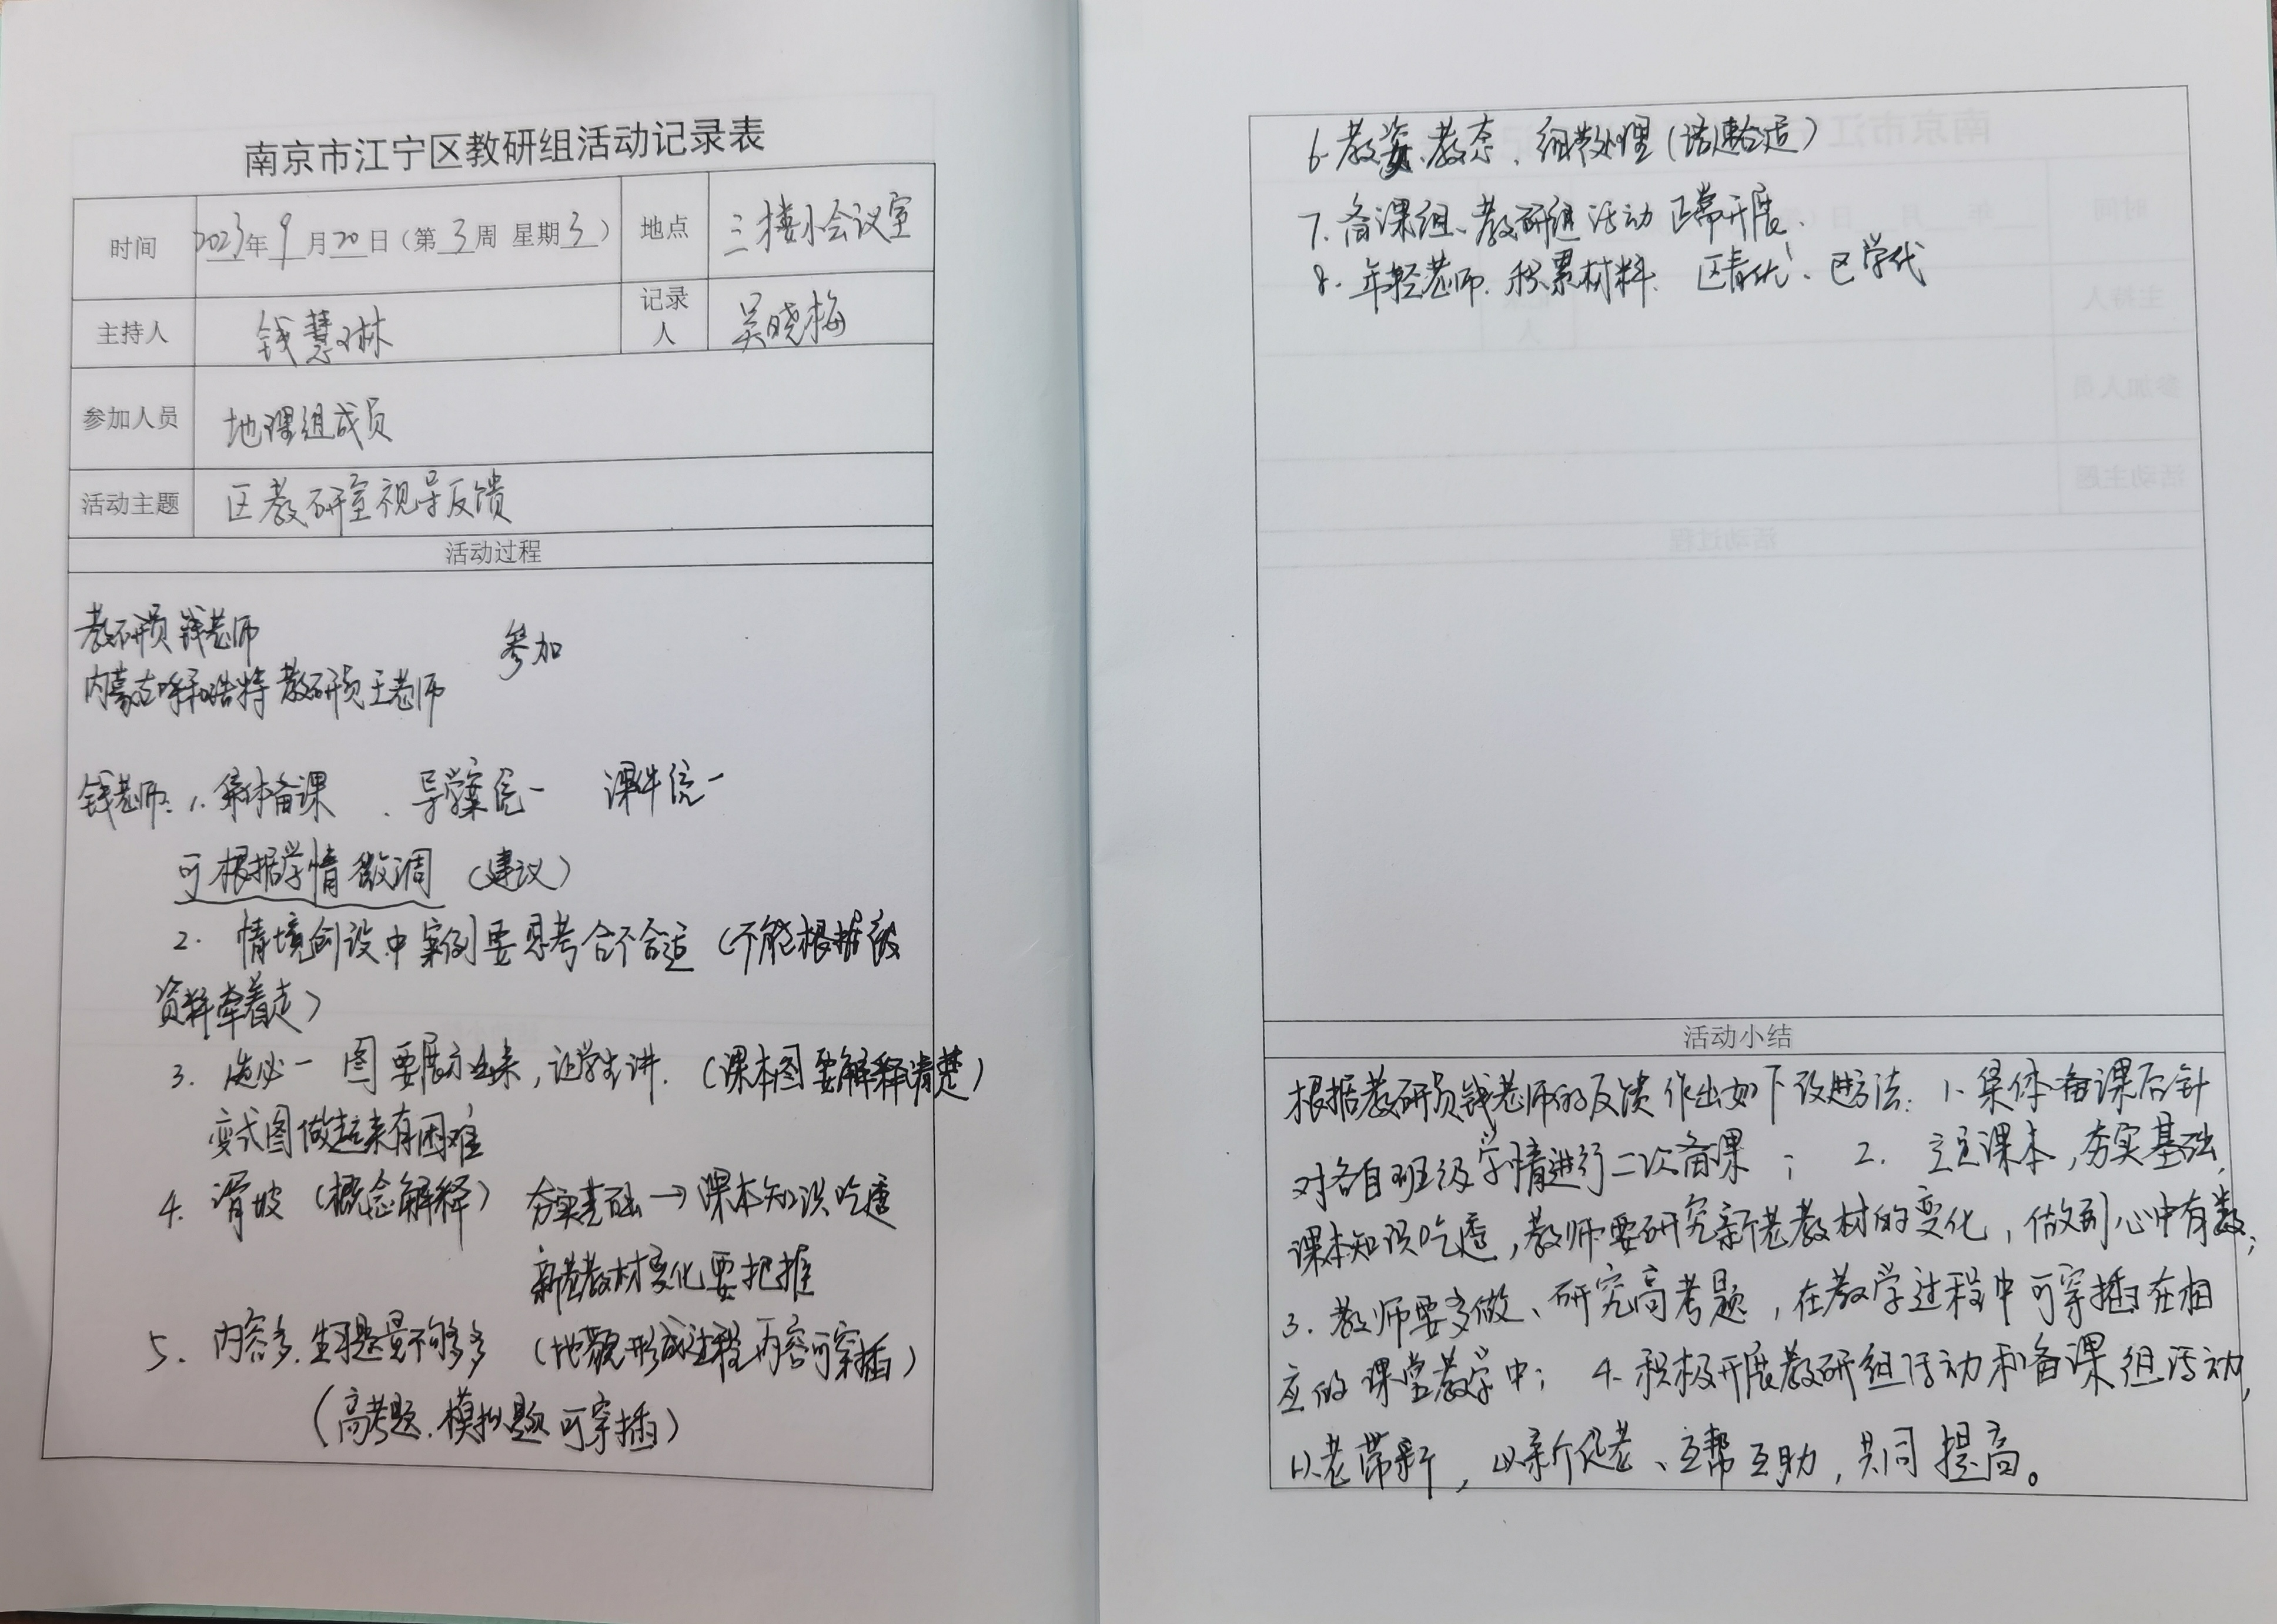 南京市江宁区教研组活动记录表
时间 2023年9月20日（第3周 星期3） 地点 三楼小会议室
主持人 钱慧琳 记录人 吴晓梅
参加人员 地理组成员
活动主题 区教研室视导反馈
活动过程
教研员钱老师
参加
内蒙古呼和浩特教研员王老师
钱老师：1. 集体备课 、导学案统一 课件统一
可根据学情微调（建议）
2. 情境创设中案例要思考合不合适（不能根据被
资料牵着走）
3. 选必一 图要展示出来，让学生讲.（课本图要解释清楚）
变式图做起来有困难
4. 滑坡（概念解释） 夯实基础→课本知识吃透
新老教材变化要把握
5. 内容多、习题量不够多（地貌形成过程内容可穿插）
（高考题、模拟题可穿插）
6. 教姿、教态、细节处理（语速合适）
7. 备课组、教研组活动正常开展.
8. 年轻老师. 积累材料. 区青优、区学代
活动小结
根据教研员钱老师的反馈作出如下改进方法：1. 集体备课后针
对各自班级学情进行二次备课； 2. 立足课本，夯实基础，
课本知识吃透，教师要研究新老教材的变化，做到心中有数；
3. 教师要多做、研究高考题，在教学过程中可穿插在相
应的课堂教学中； 4. 积极开展教研组活动和备课组活动，
以老带新，以新促老、互帮互助，共同提高。